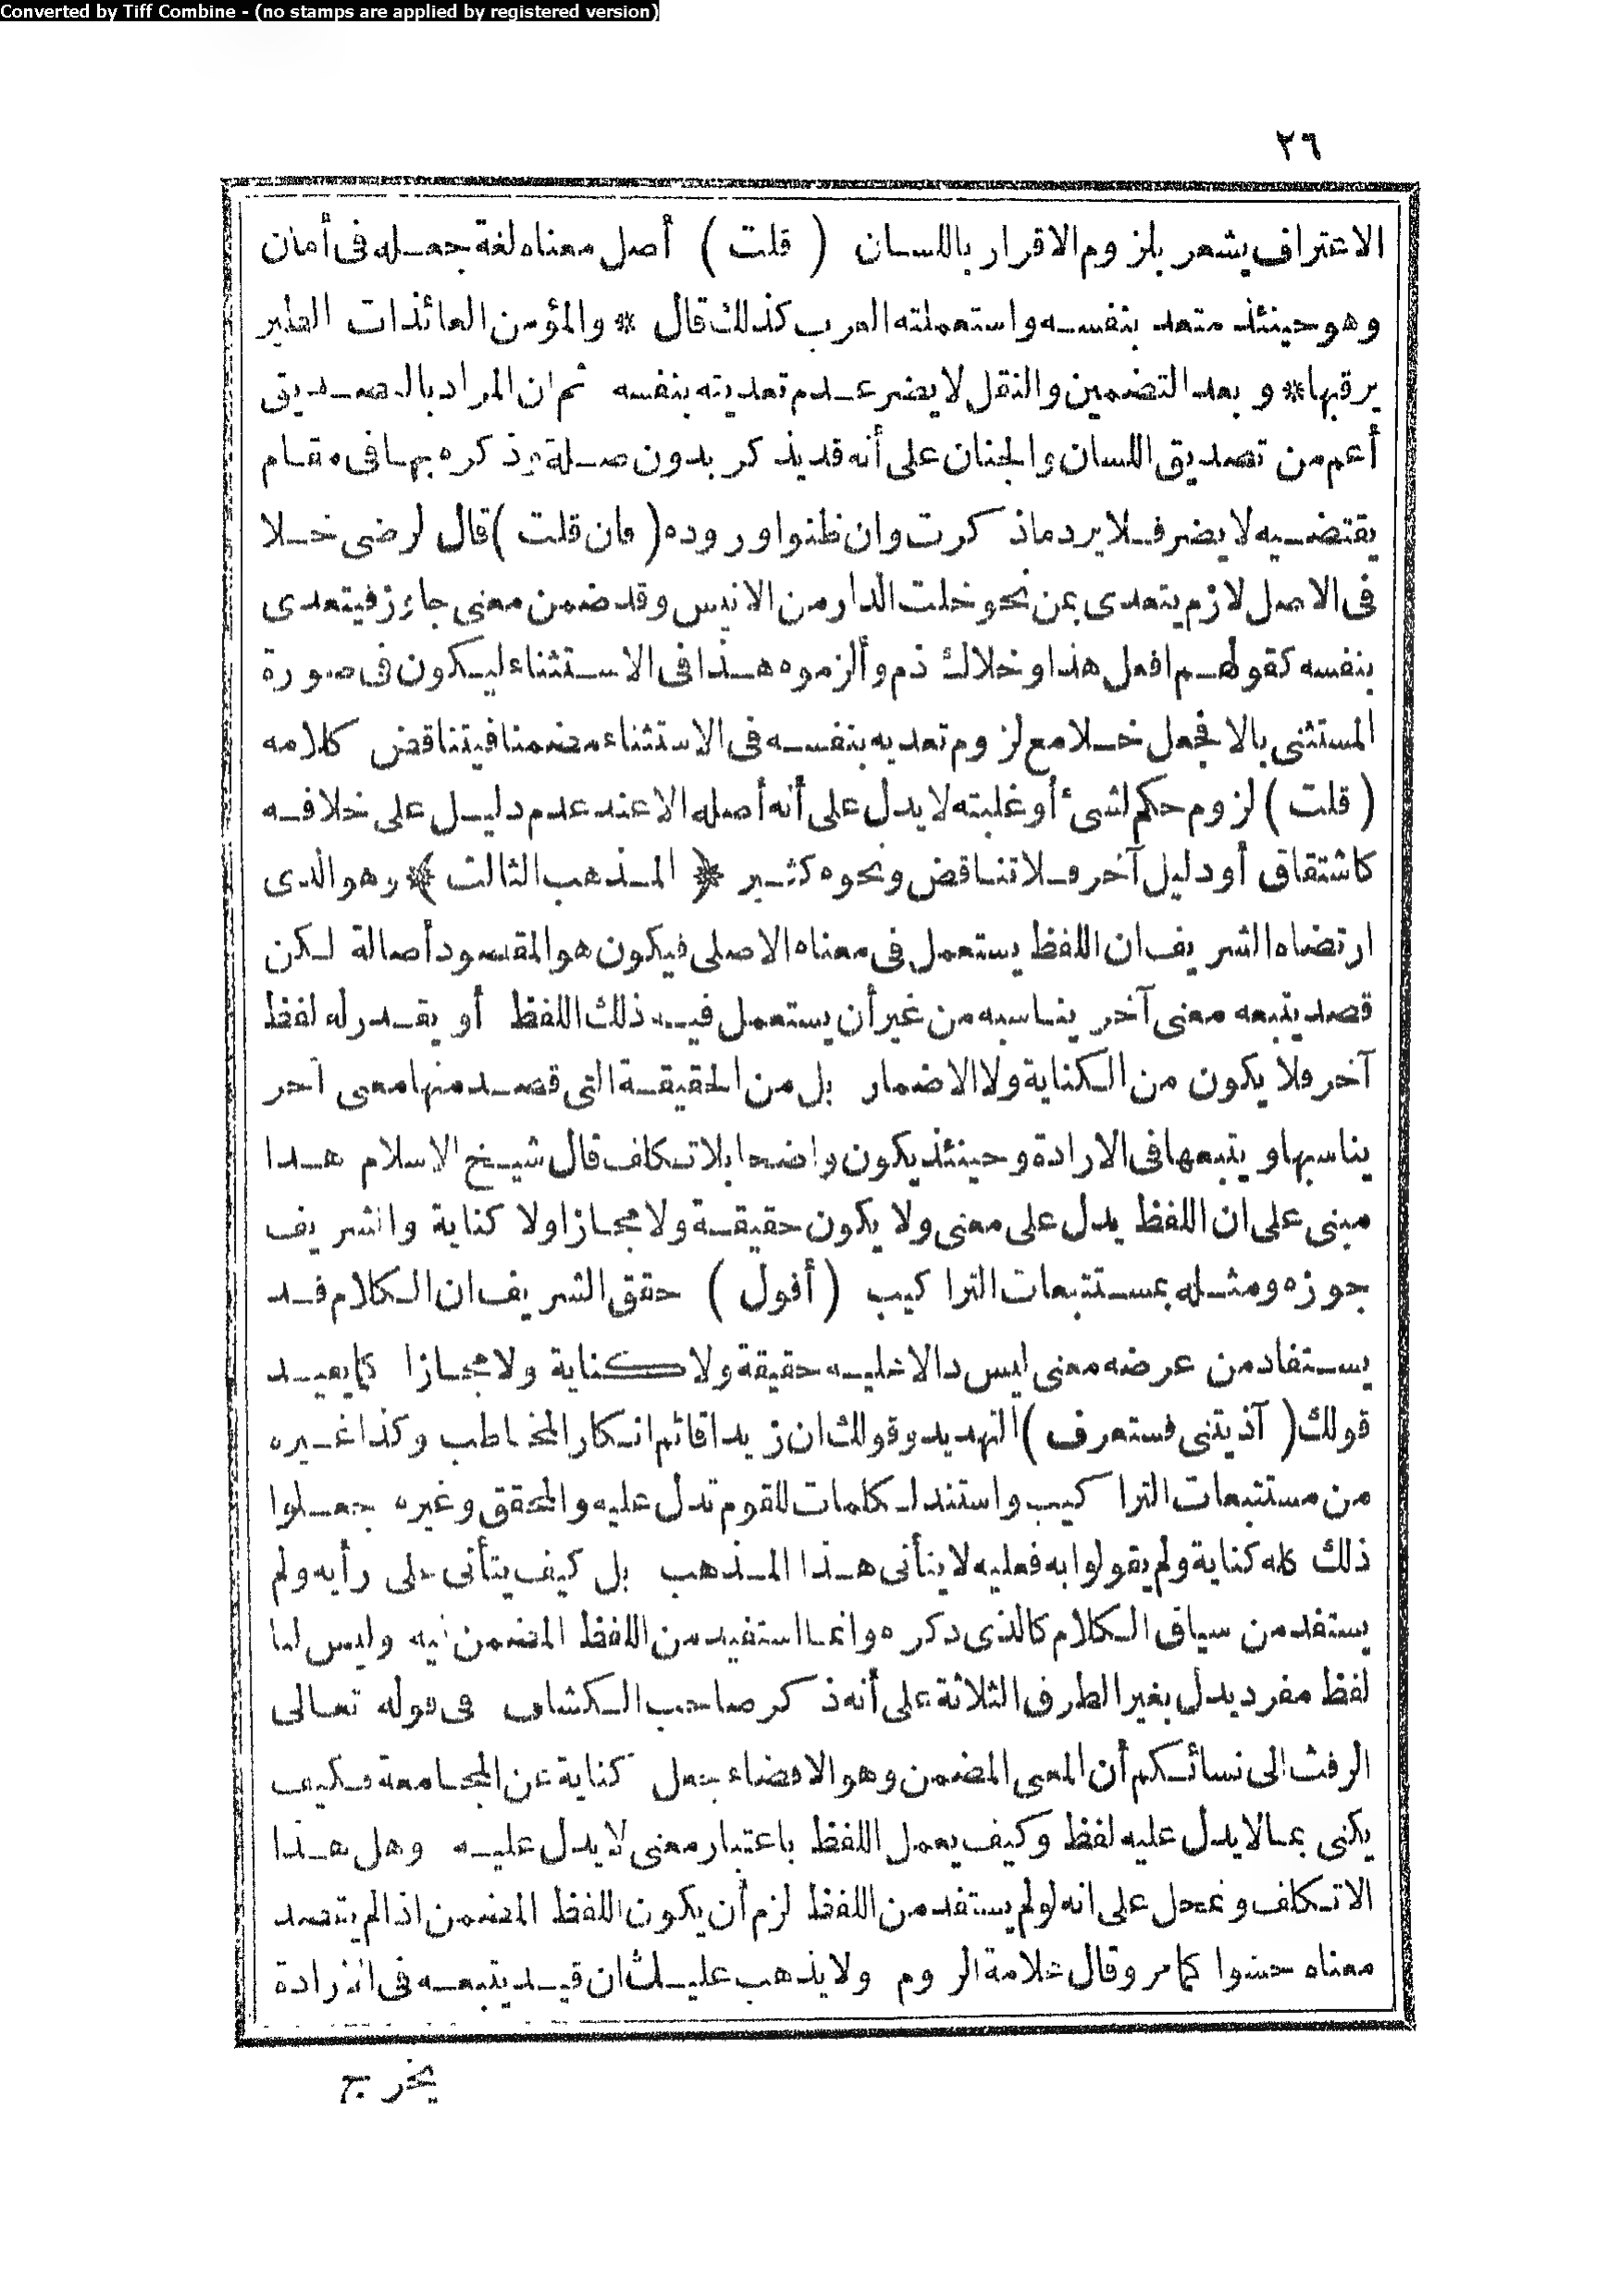 Converted by Tiff Combine - (no stamps are applied by registered version)
٢٦
الاعتراف يشعر بلزوم الاقرار باللسان ( قلت ) أصل معناه لغة جعله فى أمان
وهو حينئذ متعد بنفسه واستعملته العرب كذلك قال * والمؤمن العائذات الطير
يرقبها * و بعد التضمين والنقل لا يضر عدم تعديته بنفسه ثم ان المراد بالتصديق
أعم من تصديق اللسان والجنان على أنه قد يذكر بدون صلة وذكره بها فى مقام
يقتضيه لا يضر فلا يرد ماذكرت وان ظنوا وروده ( فان قلت ) قال لرضى خلا
فى الاصل لازم يتعدى بمن نحو خلت الدار من الانيس وقد ضمن معنى جاوز فيتعدى
بنفسه كقولهم افعل هذا وخلاك ذم وألزموه هذا فى الاستثناء ليكون فى صورة
المستثنى بالا فجعل خلا مع لزوم تعديه بنفسه فى الاستثناء مضمنا فيتناقض كلامه
( قلت ) لزوم حكم لشئ أو غلبته لا يدل على أنه أصله الا عند عدم دليل على خلافه
كاشتقاق أو دليل آخر فلا تناقض ونحوه كثير ﴿ المذهب الثالث ﴾ وهو الذى
ارتضاه الشريف ان اللفظ يستعمل فى معناه الاصلى فيكون هو المقصود أصالة لكن
قصد بتبعه معنى آخر يناسبه من غير أن يستعمل فيه ذلك اللفظ أو يقدر له لفظ
آخر فلا يكون من الكناية ولا الاضمار بل من الحقيقة التى قصد منها معنى آخر
يناسبها ويتبعها فى الارادة وحينئذ يكون واضحا بلا تكلف قال شيخ الاسلام هذا
مبنى على ان اللفظ يدل على معنى ولا يكون حقيقة ولا مجازا ولا كناية والشريف
جوزه ومثله بمستتبعات التراكيب ( أقول ) حقق الشريف ان الكلام قد
يستفاد من عرضه معنى ليس دالا عليه حقيقة ولا كناية ولا مجازا كما يفيد
قولك ( آذيتنى فستعرف ) التهديد وقولك ان زيدا قائم انكار المخاطب وكذا غيره
من مستتبعات التراكيب واستند لكلمات للقوم تدل عليه والمحقق وغيره جعلوا
ذلك كله كناية ولم يقولوا به فعليه لا يتأتى هذا المذهب بل كيف يتأتى على رأيه ولم
يستفد من سياق الكلام كالذى ذكره وانما استفيد من اللفظ المضمن فيه وليس لنا
لفظ مفرد يدل بغير الطرق الثلاثة على أنه ذكر صاحب الكشاف فى قوله تعالى
الرفث الى نسائكم أن المعنى المضمن وهو الافضاء جعل كناية عن المجامعة فكيف
يكنى بما لا يدل عليه لفظ وكيف يعمل اللفظ باعتبار معنى لا يدل عليه وهل هذا
الا تكلف وتمحل على انه لو لم يستفد من اللفظ لزم أن يكون اللفظ المضمن اذا لم يقصد
معناه حشوا كما مر وقال علامة الروم ولا يذهب عليك ان قيد يتبعه فى الارادة
يخرج